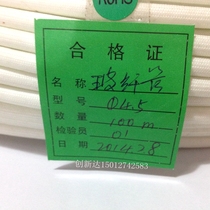 RoHS
合格证
名称 玻纤管
型号 Φ4.5
数量 100m
检验员 01
日期 2014.7.28
创新达15012742583